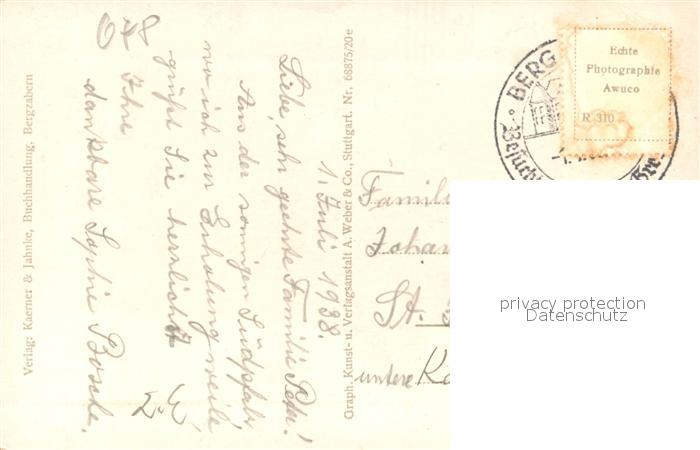 Verlag: Kaerner & Jahnke, Buchhandlung, Bergzabern
Graph. Kunst- u. Verlagsanstalt A. Weber & Co., Stuttgart. Nr. 68875/20e
1. Juli 1938.
Liebe, sehr geehrte Familie Peter!
Aus der sonnigen Südpfalz
wo ich zur Erholung weile,
grüßt Sie herzlichst
Ihre
dankbare Sophie
BERG
Besucht
Echte
Photographie
Awuco
R 310
Famili
Johan
St.
untere
privacy protection
Datenschutz